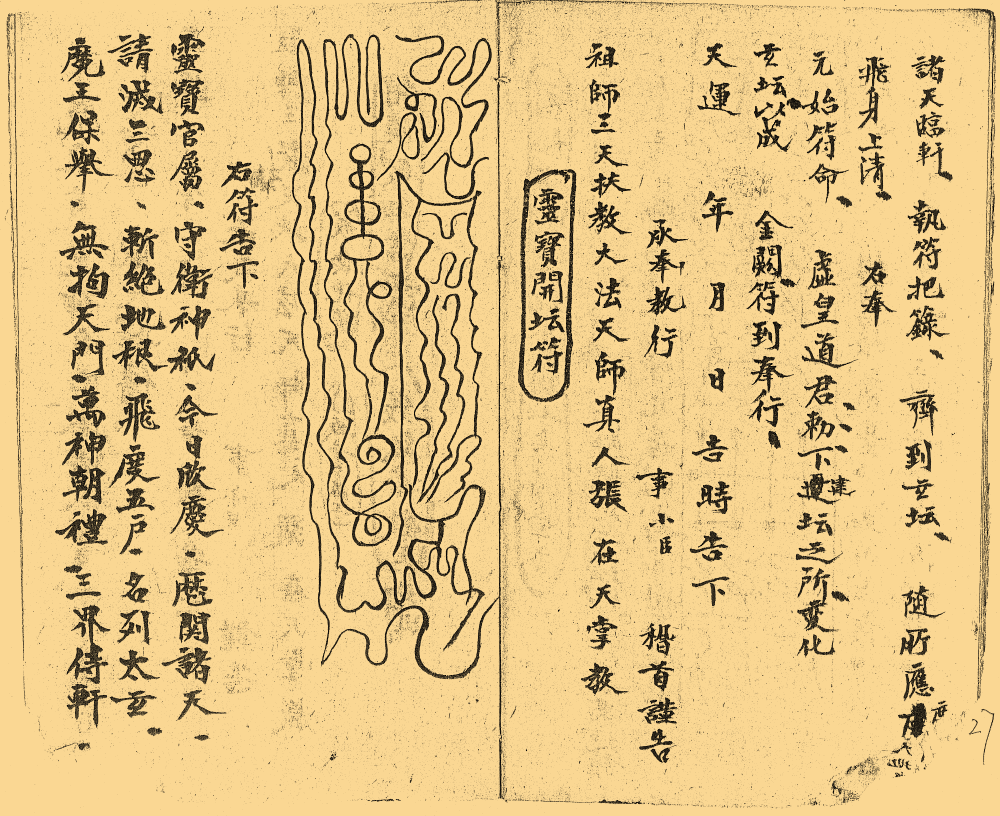 諸天臨軒、執符把籙、齊到玄坛、随所應
飛身上清、右奉
元始符命、虛皇道君勅、下遣坛之所、變化
玄坛以成 金闕符到奉行、
天運 年 月 日 告時告下
承奉教行 事小臣 稽首謹告
祖師三天扶教大法天師真人張 在天掌教
靈寶開坛符
右符告下
靈寶官屬、守衛神祇、今日欣慶、歷関諸天、
請滅三恶、斬絕地根、飛度五户、名列太玄、
魔王保舉、無拘天門、萬神朝禮、三界侍軒、
27